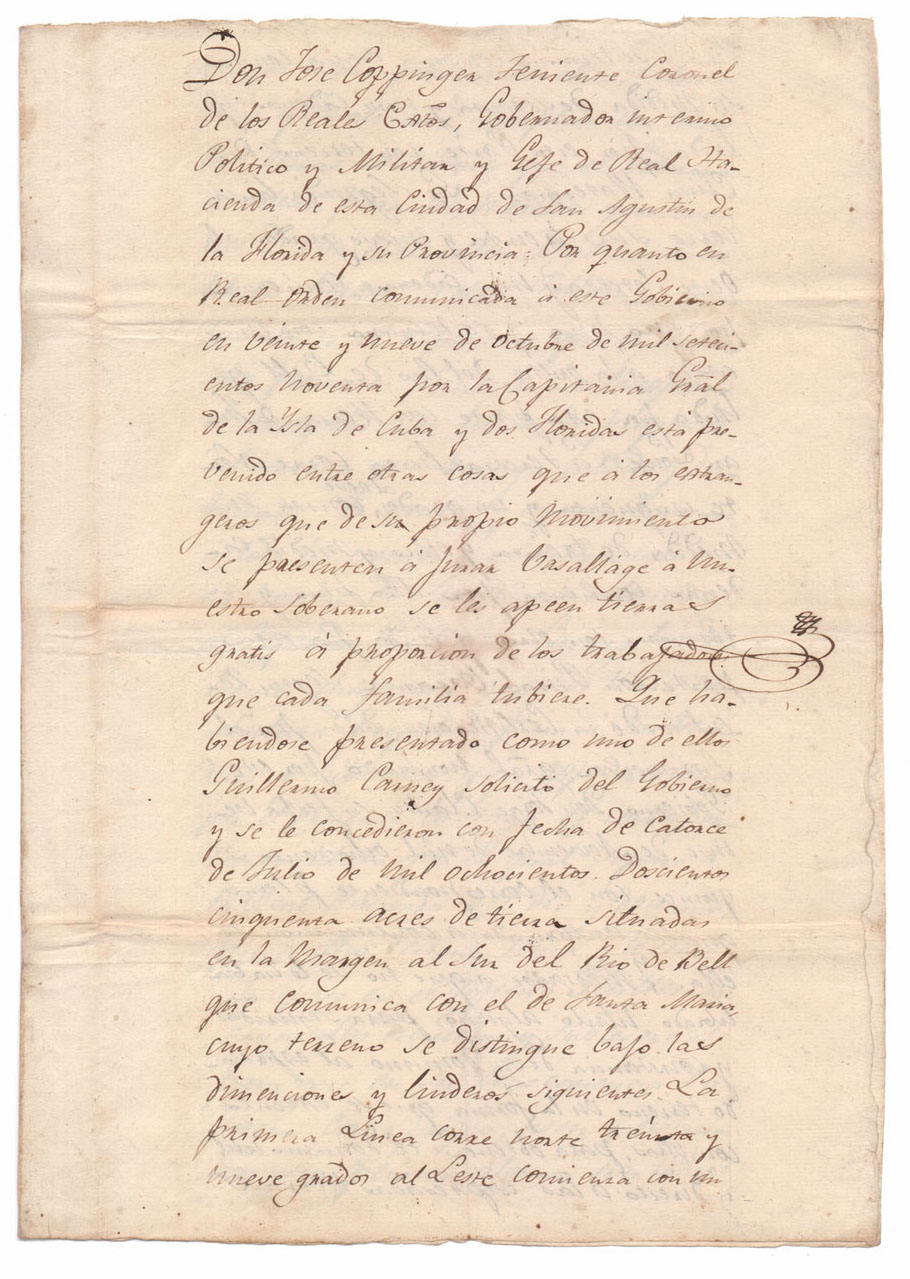 Don Jose Coppinger Teniente Coronel
de los Reales Extos, Gobernador interino
Politico y Militar y Gefe de Real Ha-
cienda de esta Ciudad de San Agustin de
la Florida y su Provincia: Por quanto en
Real orden comunicada à este Gobierno
en veinte y nueve de octubre de mil seteci-
entos noventa por la Capitania Gral
de la Ysla de Cuba y dos Floridas està pre-
venido entre otras cosas que à los estran-
geros que de su propio Movimiento
se presenten à jurar Vasallage à Nu-
estro Soberano se les apeen tierras
gratis à proporcion de los trabajadores
que cada familia tubiere. Que ha-
biendose presentado como uno de ellos
Guillermo Carney solicitò del Gobierno
y se le concedieron con fecha de Catorce
de Julio de mil ochocientos Doscientos
cinquenta acres de tierra situadas
en la Margen al Sur del Rio de Bell
que comunica con el de Santa Maria,
cuyo terreno se distingue bajo las
dimenciones y linderos siguientes. La
primera Linea corre norte treinta y
nueve grados al Leste comienza con un